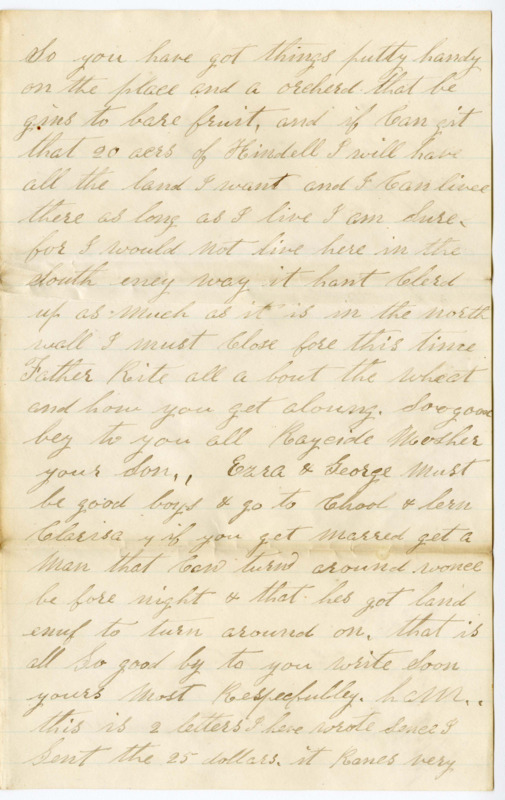 So you have got things putty handy
on the place and a orcherd that be
gins to bare fruit, and if I can git
that 20 acrs of Hindell I will have
all the land I want and I Can livee
there as long as I live I am Sure.
for I would not live here in the
South eney way it hant Clerd
up as much as it is in the north
wall I must Close fore this time
Father Rite all a bout the wheat
and how you get aloung. So good
bey to you all Mosher
your Son., Ezra & George must
be good boys & go to Chool & lern
Clarisa y if you get marred get a
Man that Can turn around wonce
be fore night & that hes got land
enuf to turn around on. that is
all So good by to you write Soon
yours Most Respecfulley.
this is 2 letters I have wrote Sence I
Sent the 25 dollars. it Ranes very